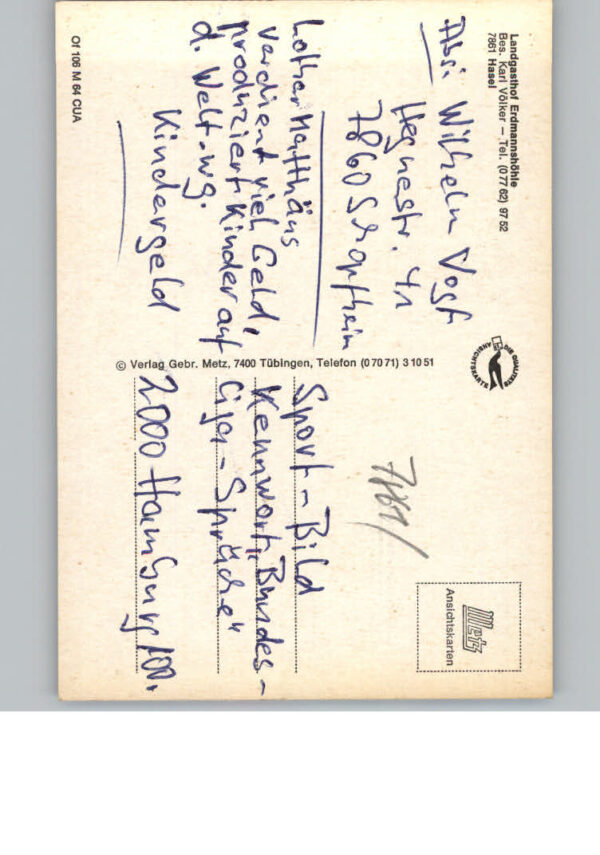 Landgasthof Erdmannshöhle
Bes. Karl Völker – Tel. (0 77 62) 97 52
7861 Hasel
Abs: Wilhelm Vogt
Hegnestr. 41
7860 Schopfheim
Lothar Matthäus
verdient viel Geld,
produziert Kinder auf
d. Welt. wg.
Kindergeld
Of 106 M 64 CUA
© Verlag Gebr. Metz, 7400 Tübingen, Telefon (0 70 71) 3 10 51
DIE QUALITÄTS
ANSICHTSKARTE
Metz
Ansichtskarten
7861/
Sport-Bild
Kennwort „Bundes-
liga-Sprüche"
2000 Hamburg 100.